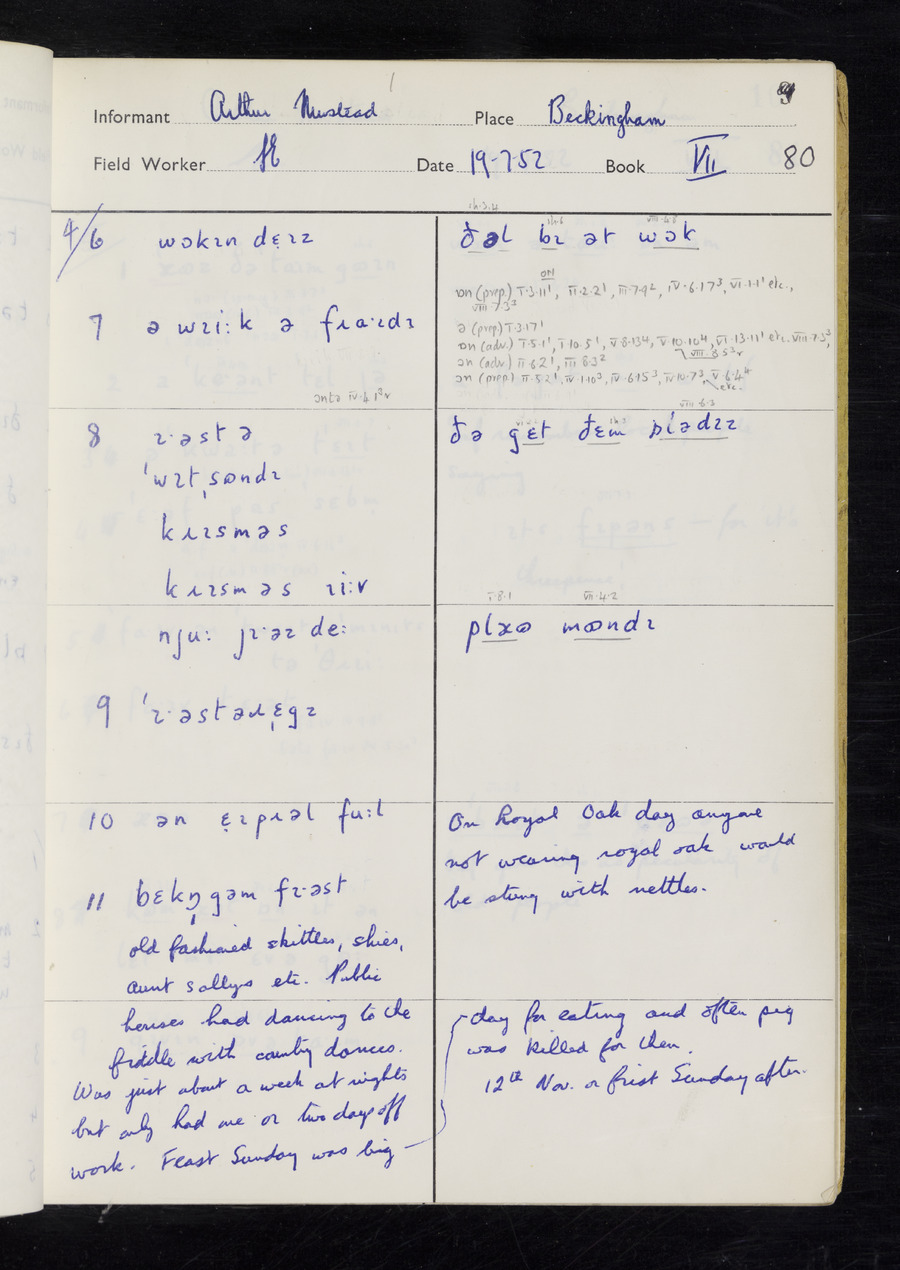 Informant Arthur Mustead Place Beckingham
Field Worker Date 19-7-52 Book VII 80
4/6 wəkɪn dɛɪz
ðəl bɪ ət wək
VIII·4·8
ON
ɒn (prep) I·3·11¹, II·2·2¹, III·7·9², IV·6·17³, VI·1·1¹ etc.,
VIII 7·3³
7 ə wɪi:k ə fɹɑ·ɪdɪ
ə (prep) I·3·17¹
ɒn (adv.) I·5·1¹, I·10·5¹, V·8·13⁴, V·10·10⁴, VI·13·11¹ etc. VIII·7·3³,
VIII·8·5³v
ən (adv) II·6·2¹, III·8·3²
ən (prep) II·5·2¹, IV·1·10³, IV·6·15³, IV·10·7³, V·6·4⁴
etc.
əntə IV·4·1²v
8 ɪ·əstə
VIII·6·3
ðə gɛt ðɛm plədɪz
ˈwɪtˌsʊndɪ
kɹɪsməs
kɹɪsməs ɪi:v
I·8·1 VII·4·2
nju: jɪ·əz de:
plæʊ mʊndɪ
9 ˈɪ·əstəɹˌɛgz
10 ən ɛɪpɹəl fu:l
On Royal Oak day anyone
not wearing royal oak would
be stung with nettles.
11 bɛkŋ̩gəm fɪ·əst
old fashioned skittles, shies,
aunt sallys etc. Public
houses had dancing to the
fiddle with country dances.
Was just about a week at nights
but only had one or two days off
work. Feast Sunday was big
day for eating and often pig
was killed for then.
12th Nov. or first Sunday after.